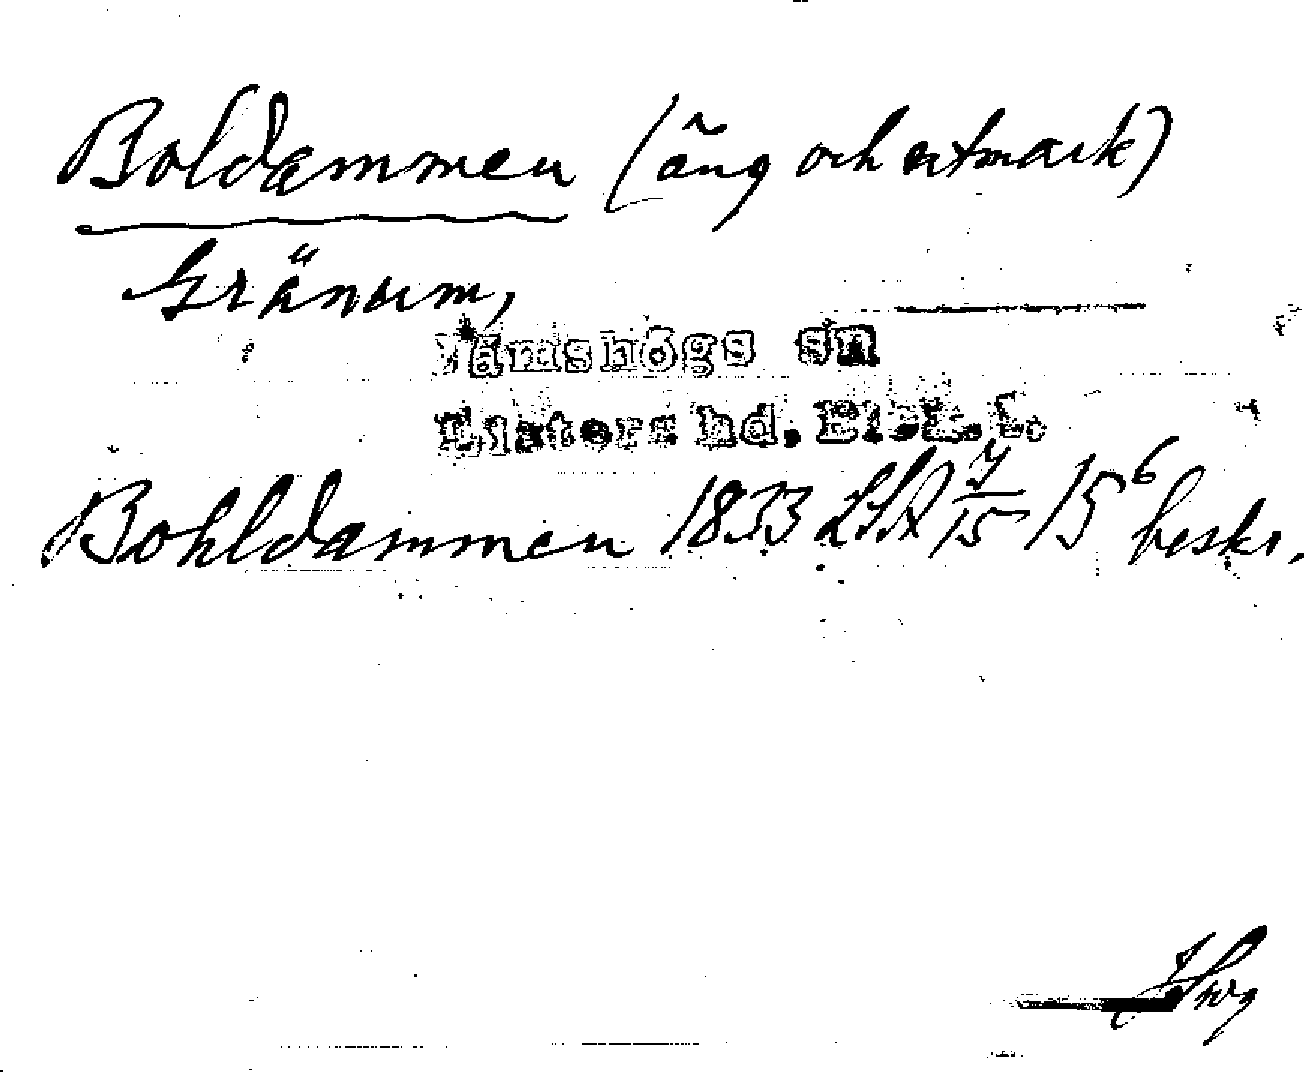 Boldammen (äng och utmark)
Gränum,
Jämshögs sn
Listers hd. Blek. l.
Bohldammen 1833 LSA 15⁶ beskr.